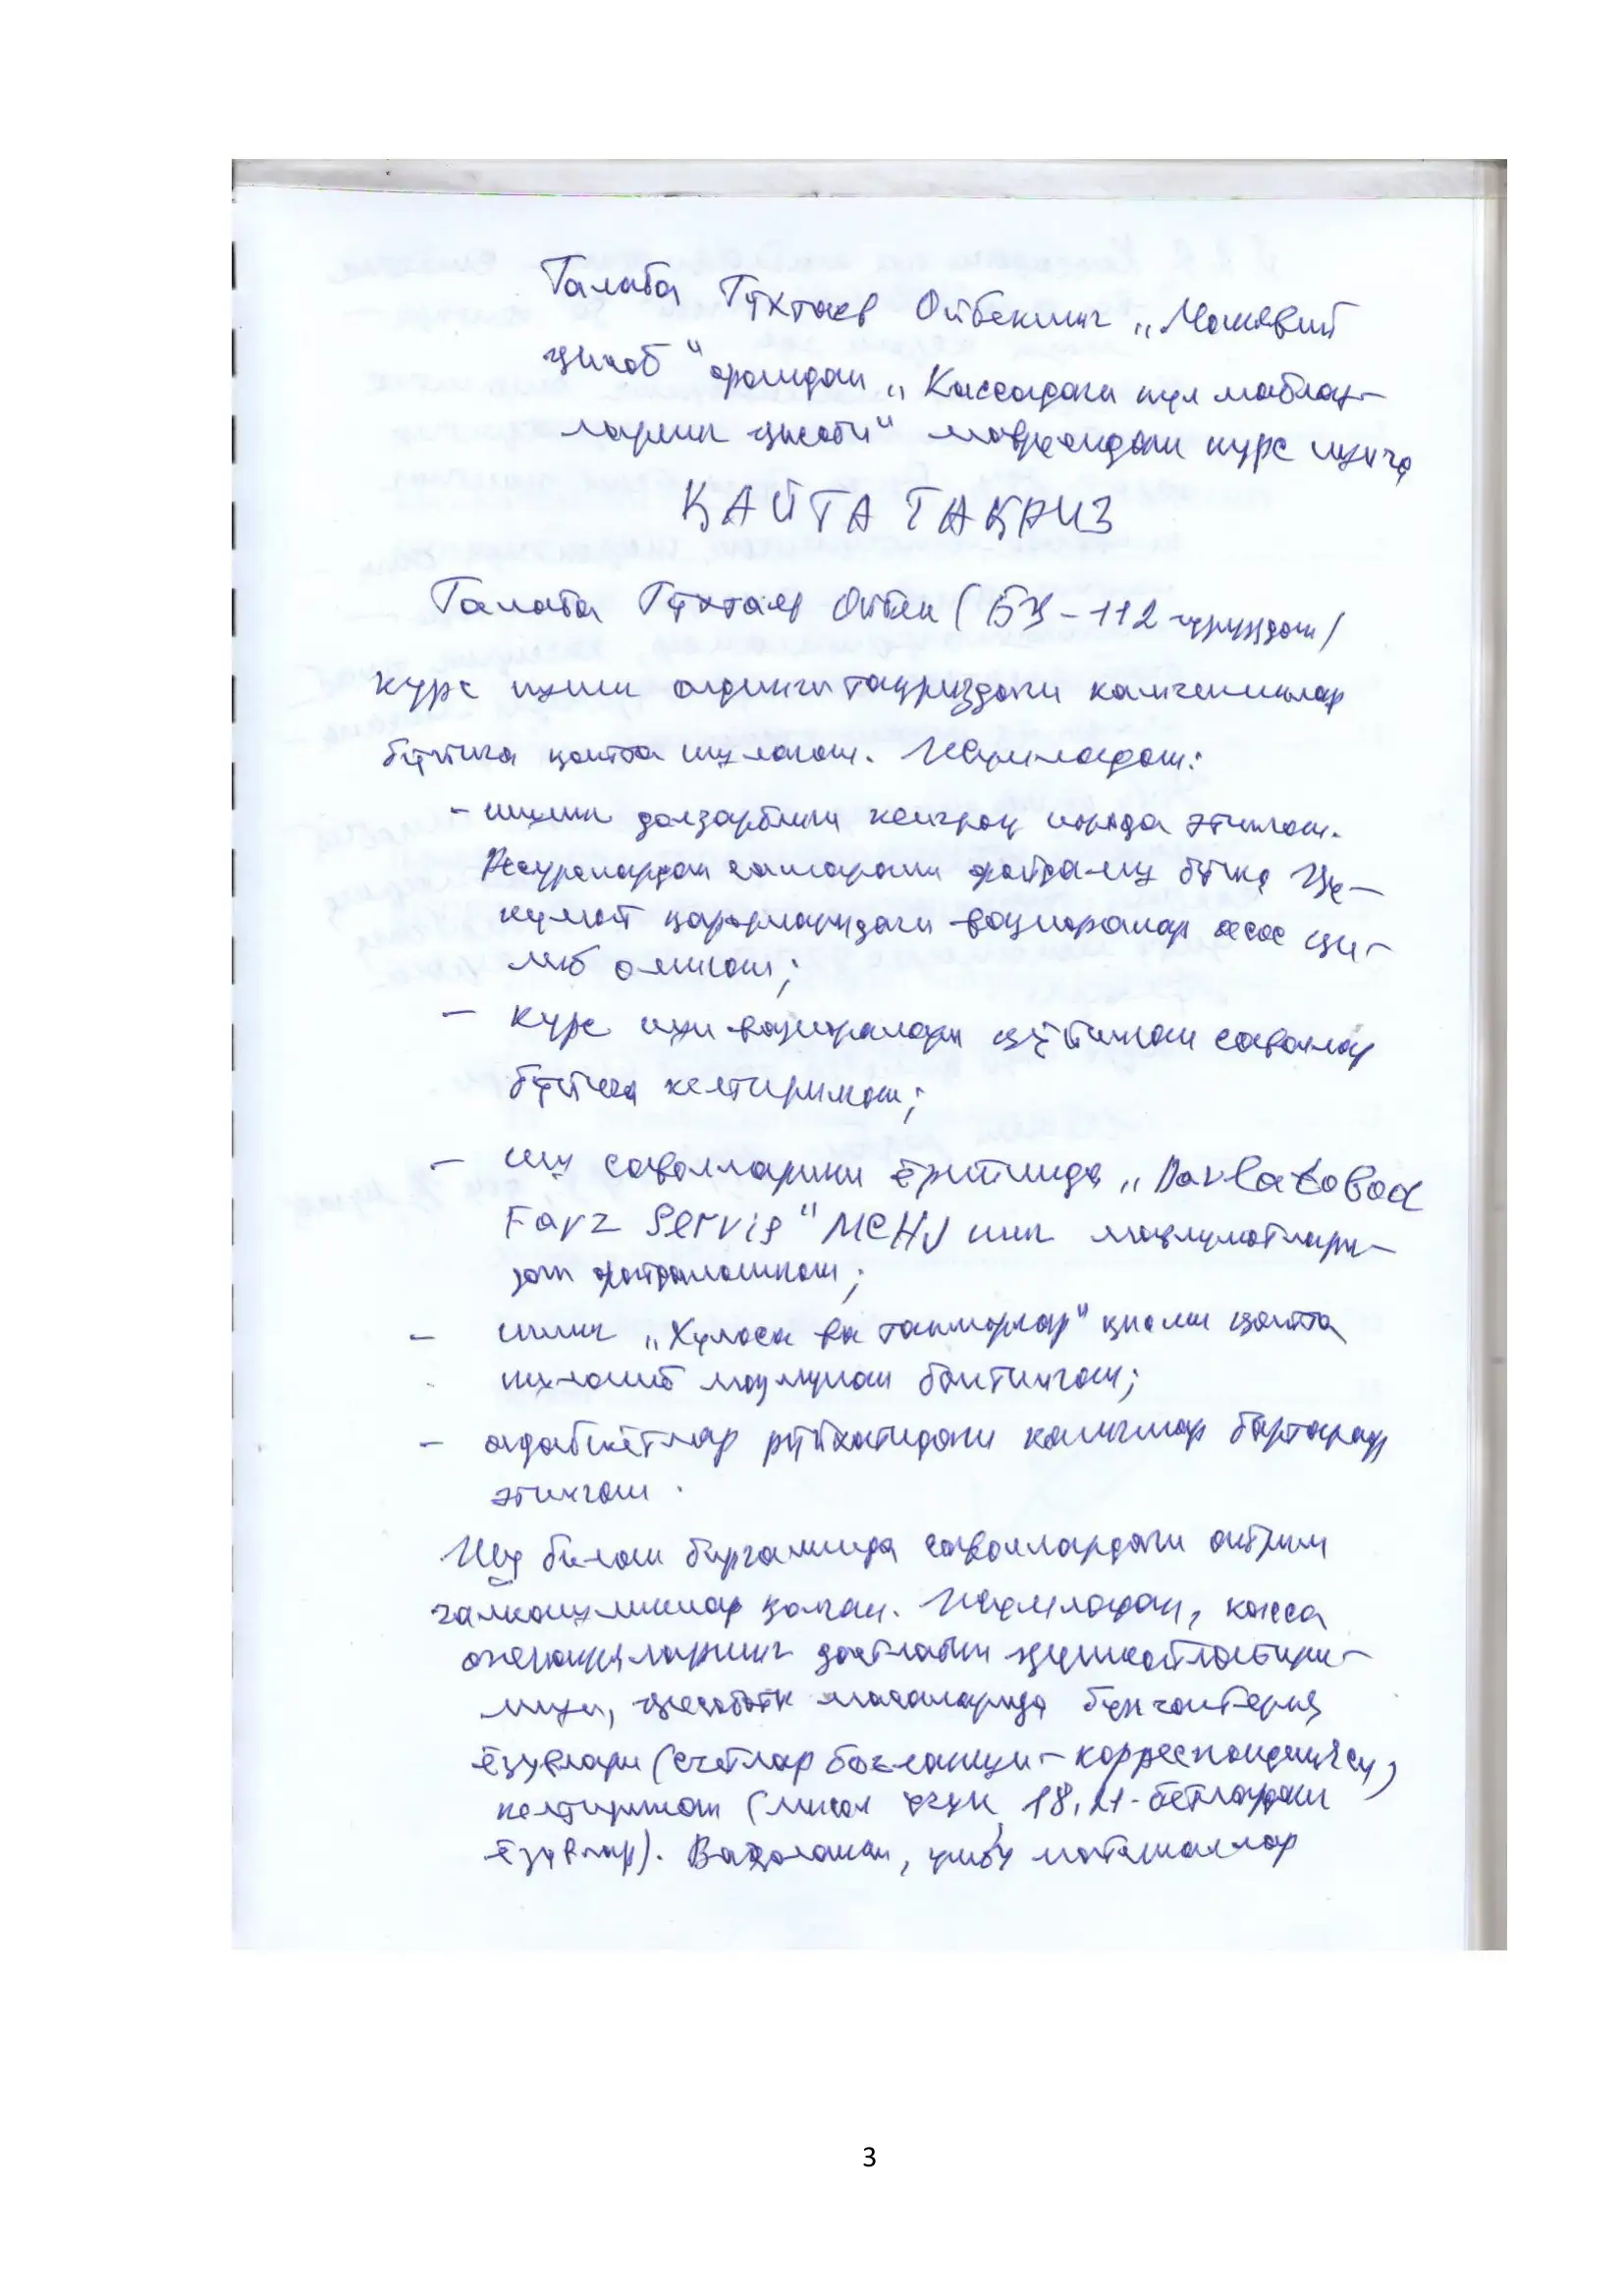 Талаба Тўхтаев Ойбекнинг „Молиявий
ҳисоб" фанидан „Кассадаги пул маблағ-
ларини ҳисоби" мавзусидаги курс ишига
ҚАЙТА ТАҚРИЗ
Талаба Тўхтаев Ойбек (БҲ-112 гуруҳдан)
курс ишини олдинги тақриздаги камчиликлар
бўйича қайта ишлаган. Жумладан:
- ишнинг долзарблиги кенгроқ ифода этилган.
Ресурслардан самарали фойдаланиш бўйича Ҳу-
кумат қарорларидаги вазифалар асос қи-
либ олинган;
- курс иши вазифалари қўйилган саволлар
бўйича келтирилган;
- шу саволларини ёритишда „Davlatobod
Farz Servis" МCHJ нинг маълумотлари-
дан фойдаланилган;
- ишнинг „Хулоса ва таклифлар" қисми қайта
ишланиб мазмунан бойитилган;
- адабиётлар рўйхатидаги камчиликлар бартараф
этилган.
Шу билан биргаликда саволлардаги айрим
чалкашликлар қолган. Жумладан, касса
операцияларининг дастлабки ҳужжатлаштири-
лиши, ҳисобот масалаларида бухгалтерия
ёзувлари (счётлар боғланиши-корреспонденцияси)
келтирилган (мисол учун, 18, 21-бетлардаги
ёзувлар). Ваҳоланки, ушбу материаллар
3